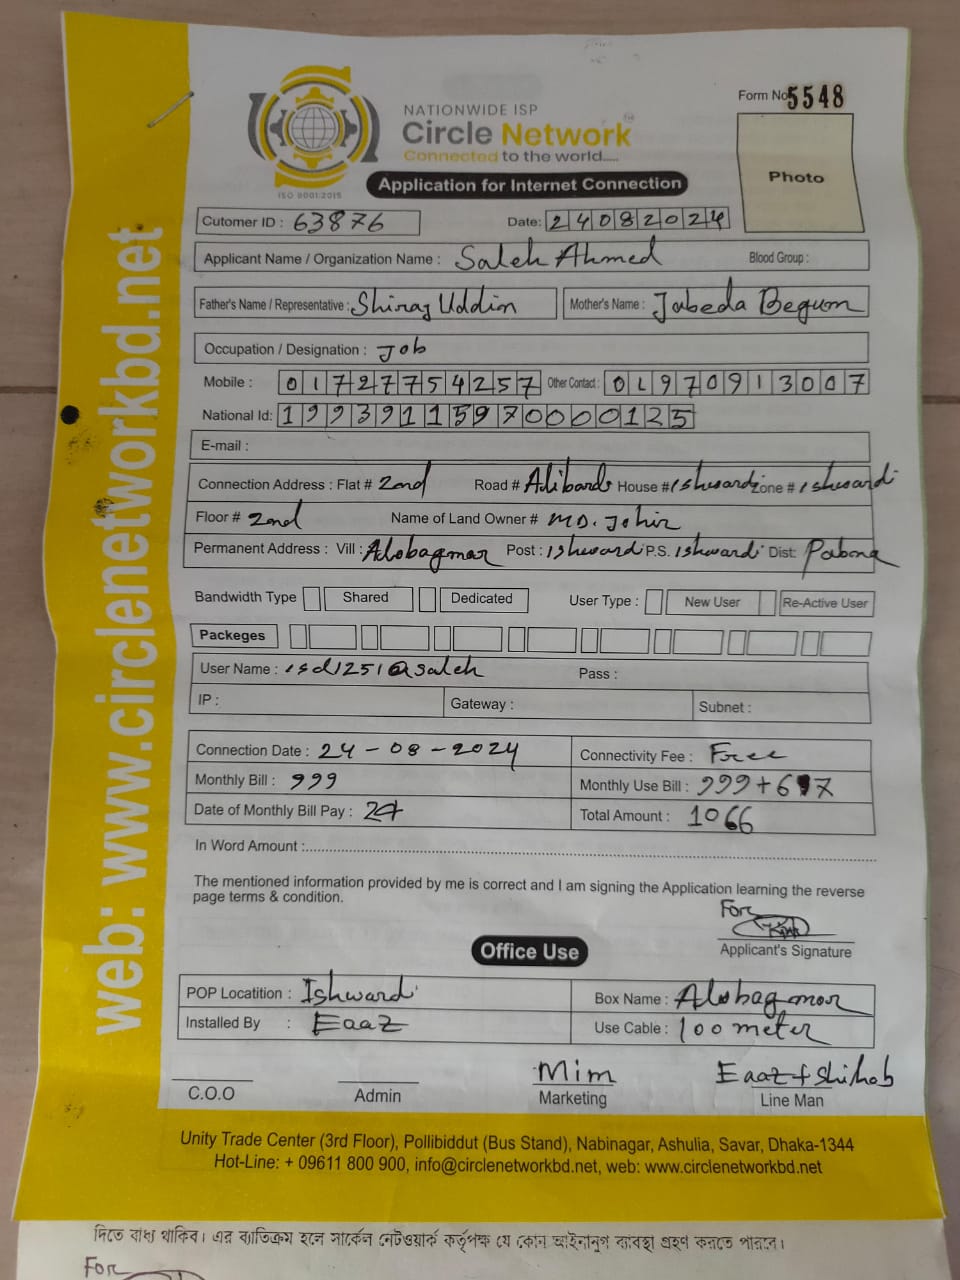 NATIONWIDE ISP
Circle Network
Connected to the world.....
ISO 9001:2015
Form No 5548
Photo
Application for Internet Connection
Cutomer ID : 63876 Date: 24082024
Applicant Name / Organization Name : Saleh Ahmed Blood Group :
Father's Name / Representative : Shiraj Uddin Mother's Name : Jabeda Begum
Occupation / Designation : Job
Mobile : 01727754257 Other Contact : 01970913007
National Id: 19939115970000125
E-mail :
Connection Address : Flat # 2nd Road # House # Ishwardi Zone # Ishwardi
Floor # 2nd Name of Land Owner # MD. Johir
Permanent Address : Vill : Alobagmor Post : Ishwardi P.S. Ishwardi Dist: Pabna
Bandwidth Type Shared Dedicated User Type : New User Re-Active User
Packeges
User Name : isd1251@saleh Pass :
IP : Gateway : Subnet :
Connection Date : 24-08-2024 Connectivity Fee : Free
Monthly Bill : 999 Monthly Use Bill : 999+67
Date of Monthly Bill Pay : 24 Total Amount : 1066
In Word Amount :
The mentioned information provided by me is correct and I am signing the Application learning the reverse
page terms & condition.
For
Applicant's Signature
Office Use
POP Locatition : Ishwardi Box Name : Alobagmor
Installed By : Eaaz Use Cable : 100 meter
Mim Eaaz + Shihab
C.O.O Admin Marketing Line Man
Unity Trade Center (3rd Floor), Pollibiddut (Bus Stand), Nabinagar, Ashulia, Savar, Dhaka-1344
Hot-Line: + 09611 800 900, info@circlenetworkbd.net, web: www.circlenetworkbd.net
web: www.circlenetworkbd.net
দিতে বাধ্য থাকিব। এর ব্যতিক্রম হলে সার্কেল নেটওয়ার্ক কর্তৃপক্ষ যে কোন আইনানুগ ব্যবস্থা গ্রহণ করতে পারবে।
For